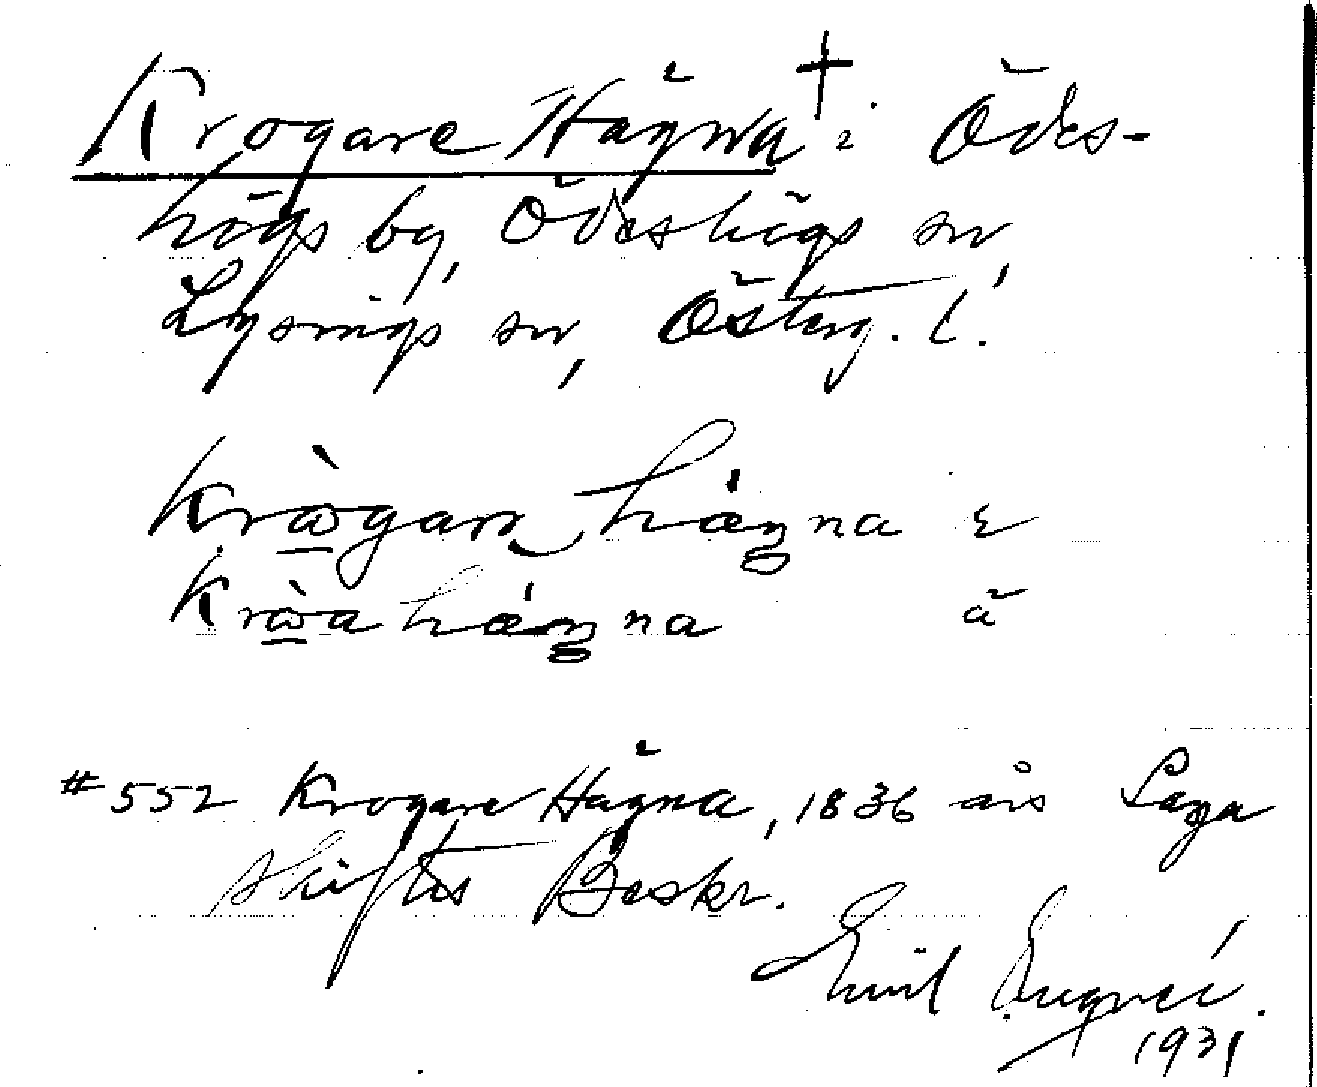 Krogare Hägna† i Ödes-
högs by, Ödeshögs sn,
Lysings sn, Österg. l.
Krògarə hägna
Kròa hägna ä
#552 Krogare Hägna, 1836 års Laga
skiftes Beskr.
Emil
1931